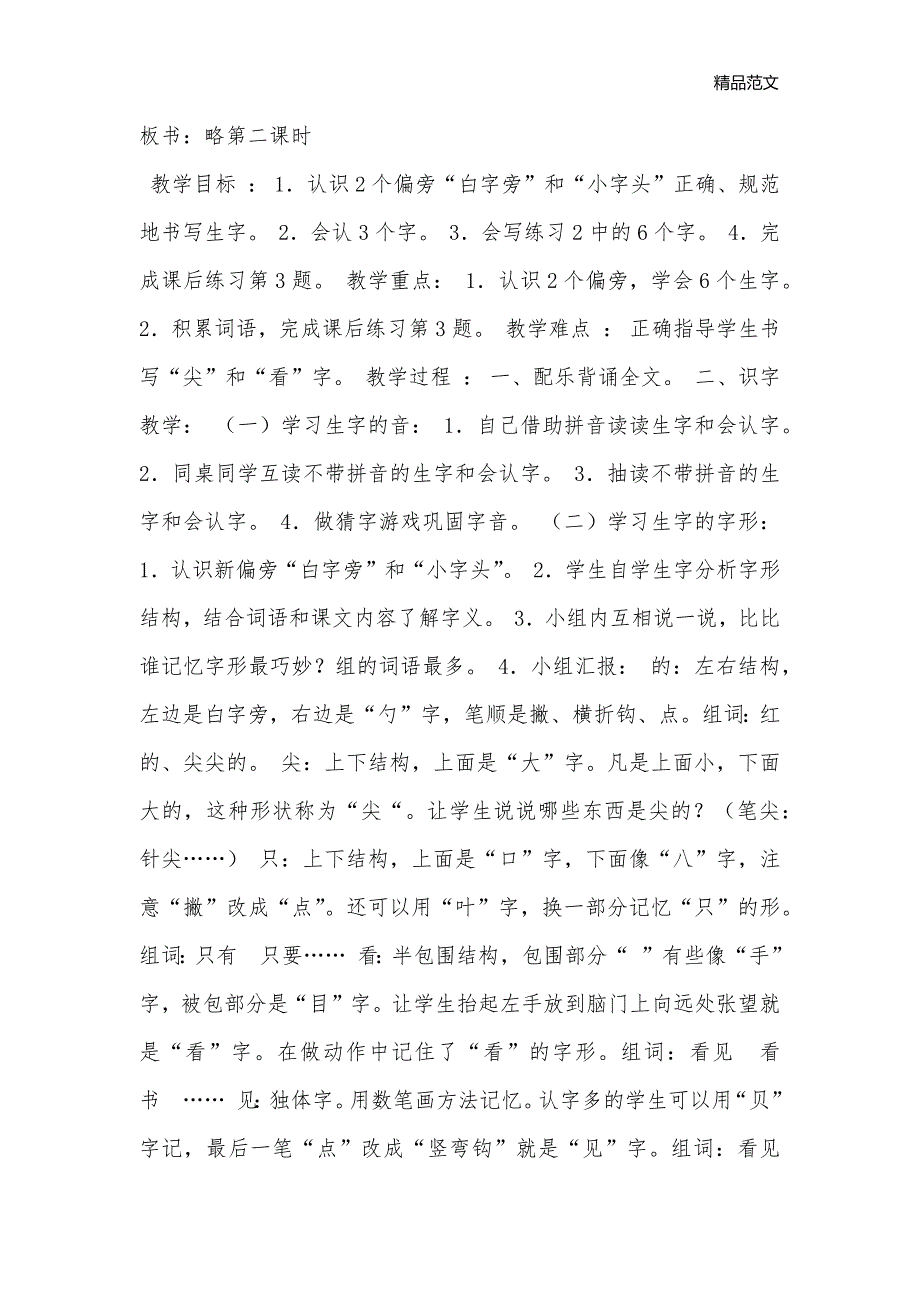 精品范文
板书：略第二课时
教学目标 ： 1．认识2个偏旁“白字旁”和“小字头”正确、规范
地书写生字。 2．会认3个字。 3．会写练习2中的6个字。 4．完
成课后练习第3题。 教学重点： 1．认识2个偏旁，学会6个生字。
2．积累词语，完成课后练习第3题。 教学难点 ： 正确指导学生书
写“尖”和“看”字。 教学过程 ： 一、配乐背诵全文。 二、识字
教学： （一）学习生字的音： 1．自己借助拼音读读生字和会认字。
2．同桌同学互读不带拼音的生字和会认字。 3．抽读不带拼音的生
字和会认字。 4．做猜字游戏巩固字音。 （二）学习生字的字形：
1．认识新偏旁“白字旁”和“小字头”。 2．学生自学生字分析字形
结构，结合词语和课文内容了解字义。 3．小组内互相说一说，比比
谁记忆字形最巧妙？组的词语最多。 4．小组汇报： 的：左右结构，
左边是白字旁，右边是“勺”字，笔顺是撇、横折钩、点。组词：红
的、尖尖的。 尖：上下结构，上面是“大”字。凡是上面小，下面
大的，这种形状称为“尖“。让学生说说哪些东西是尖的？（笔尖：
针尖……） 只：上下结构，上面是“口”字，下面像“八”字，注
意“撇”改成“点”。还可以用“叶”字，换一部分记忆“只”的形。
组词：只有 只要…… 看：半包围结构，包围部分“ ”有些像“手”
字，被包部分是“目”字。让学生抬起左手放到脑门上向远处张望就
是“看”字。在做动作中记住了“看”的字形。组词：看见 看
书 …… 见：独体字。用数笔画方法记忆。认字多的学生可以用“贝”
字记，最后一笔“点”改成“竖弯钩”就是“见”字。组词：看见